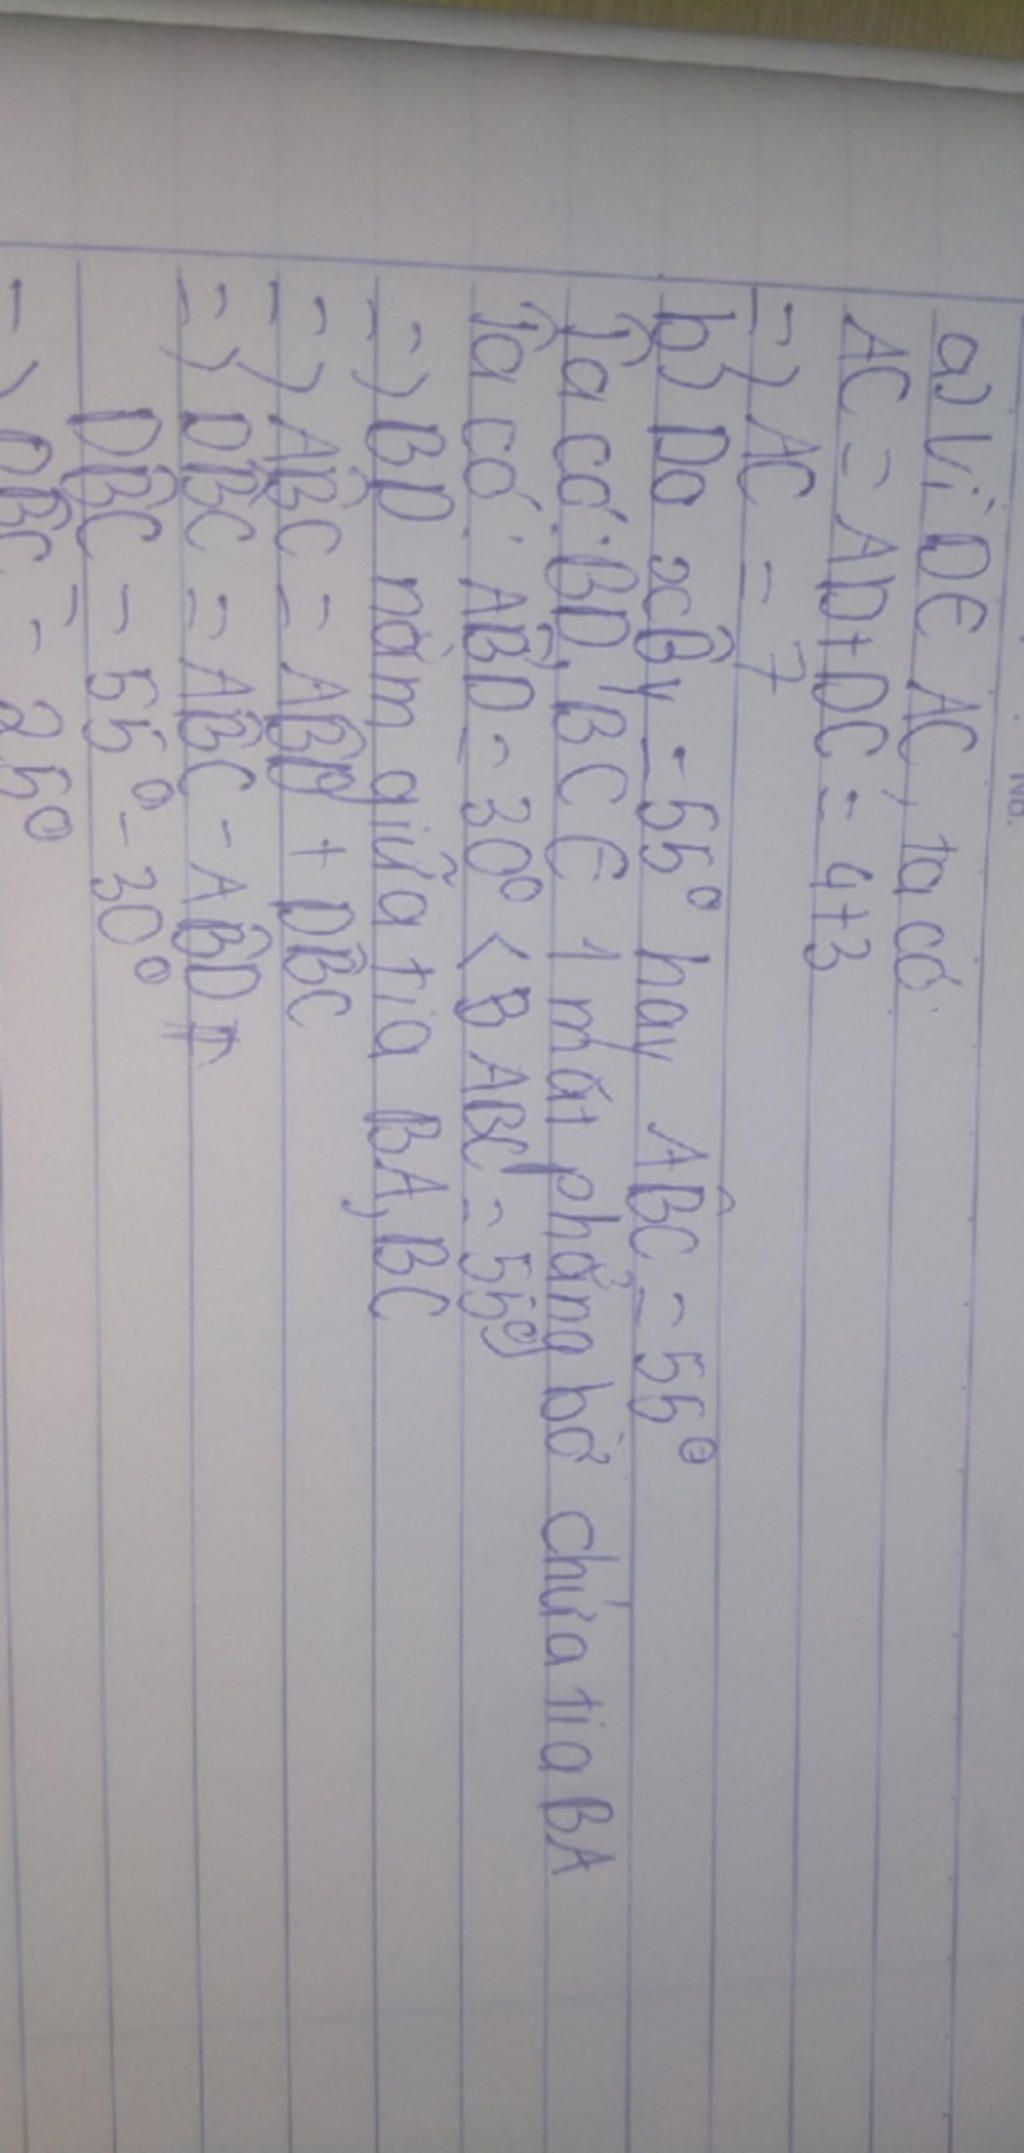 No.
a) Vì D∈ AC, ta có
AC = AD+DC = 4+3
=) AC = 7
b) Do xB̂y = 55° hay AB̂C = 55°
Ta có: BD, BC ∈ 1 mặt phẳng bờ chứa tia BA
Ta có: AB̂D = 30° < B ABC = 55°)
=) BD nằm giữa tia BA, BC
=) AB̂C = AB̂D + DB̂C
=) DB̂C = AB̂C - AB̂D
DB̂C = 55° - 30°
=) DB̂C = 25°